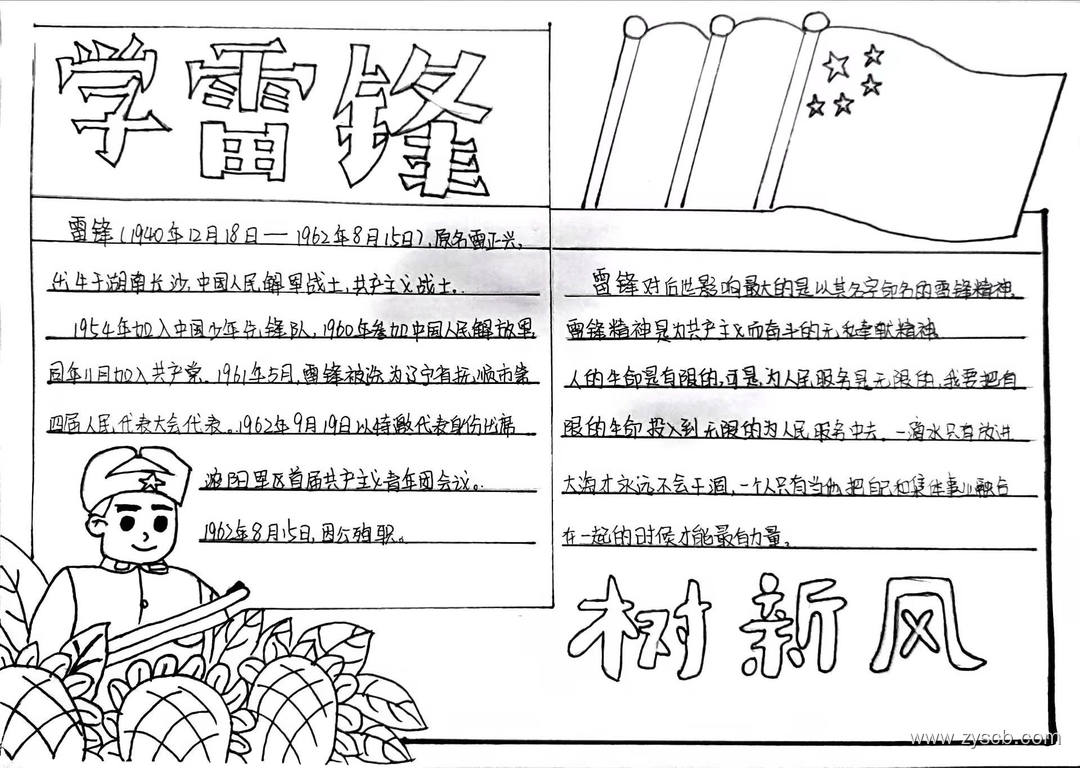 学雷锋
雷锋(1940年12月18日—1962年8月15日),原名雷正兴,
出生于湖南长沙,中国人民解军战士,共产主义战士。
1954年加入中国少年先锋队,1960年参加中国人民解放军
同年11月加入共产党。1961年5月,雷锋被选为辽宁省抚顺市第
四届人民代表大会代表。1962年9月19日以特邀代表身份出席
沈阳军区首届共产主义青年团会议。
1962年8月15日,因公殉职。
雷锋对后世影响最大的是以其名字命名的雷锋精神。
雷锋精神是为共产主义而奋斗的无私奉献精神
人的生命是有限的,可是,为人民服务是无限的,我要把有
限的生命投入到无限的为人民服务中去。一滴水只有放进
大海才永远不会干涸,一个人只有当他把自己和集体事业融合
在一起的时候才能最有力量。
树新风
www.zyscb.com